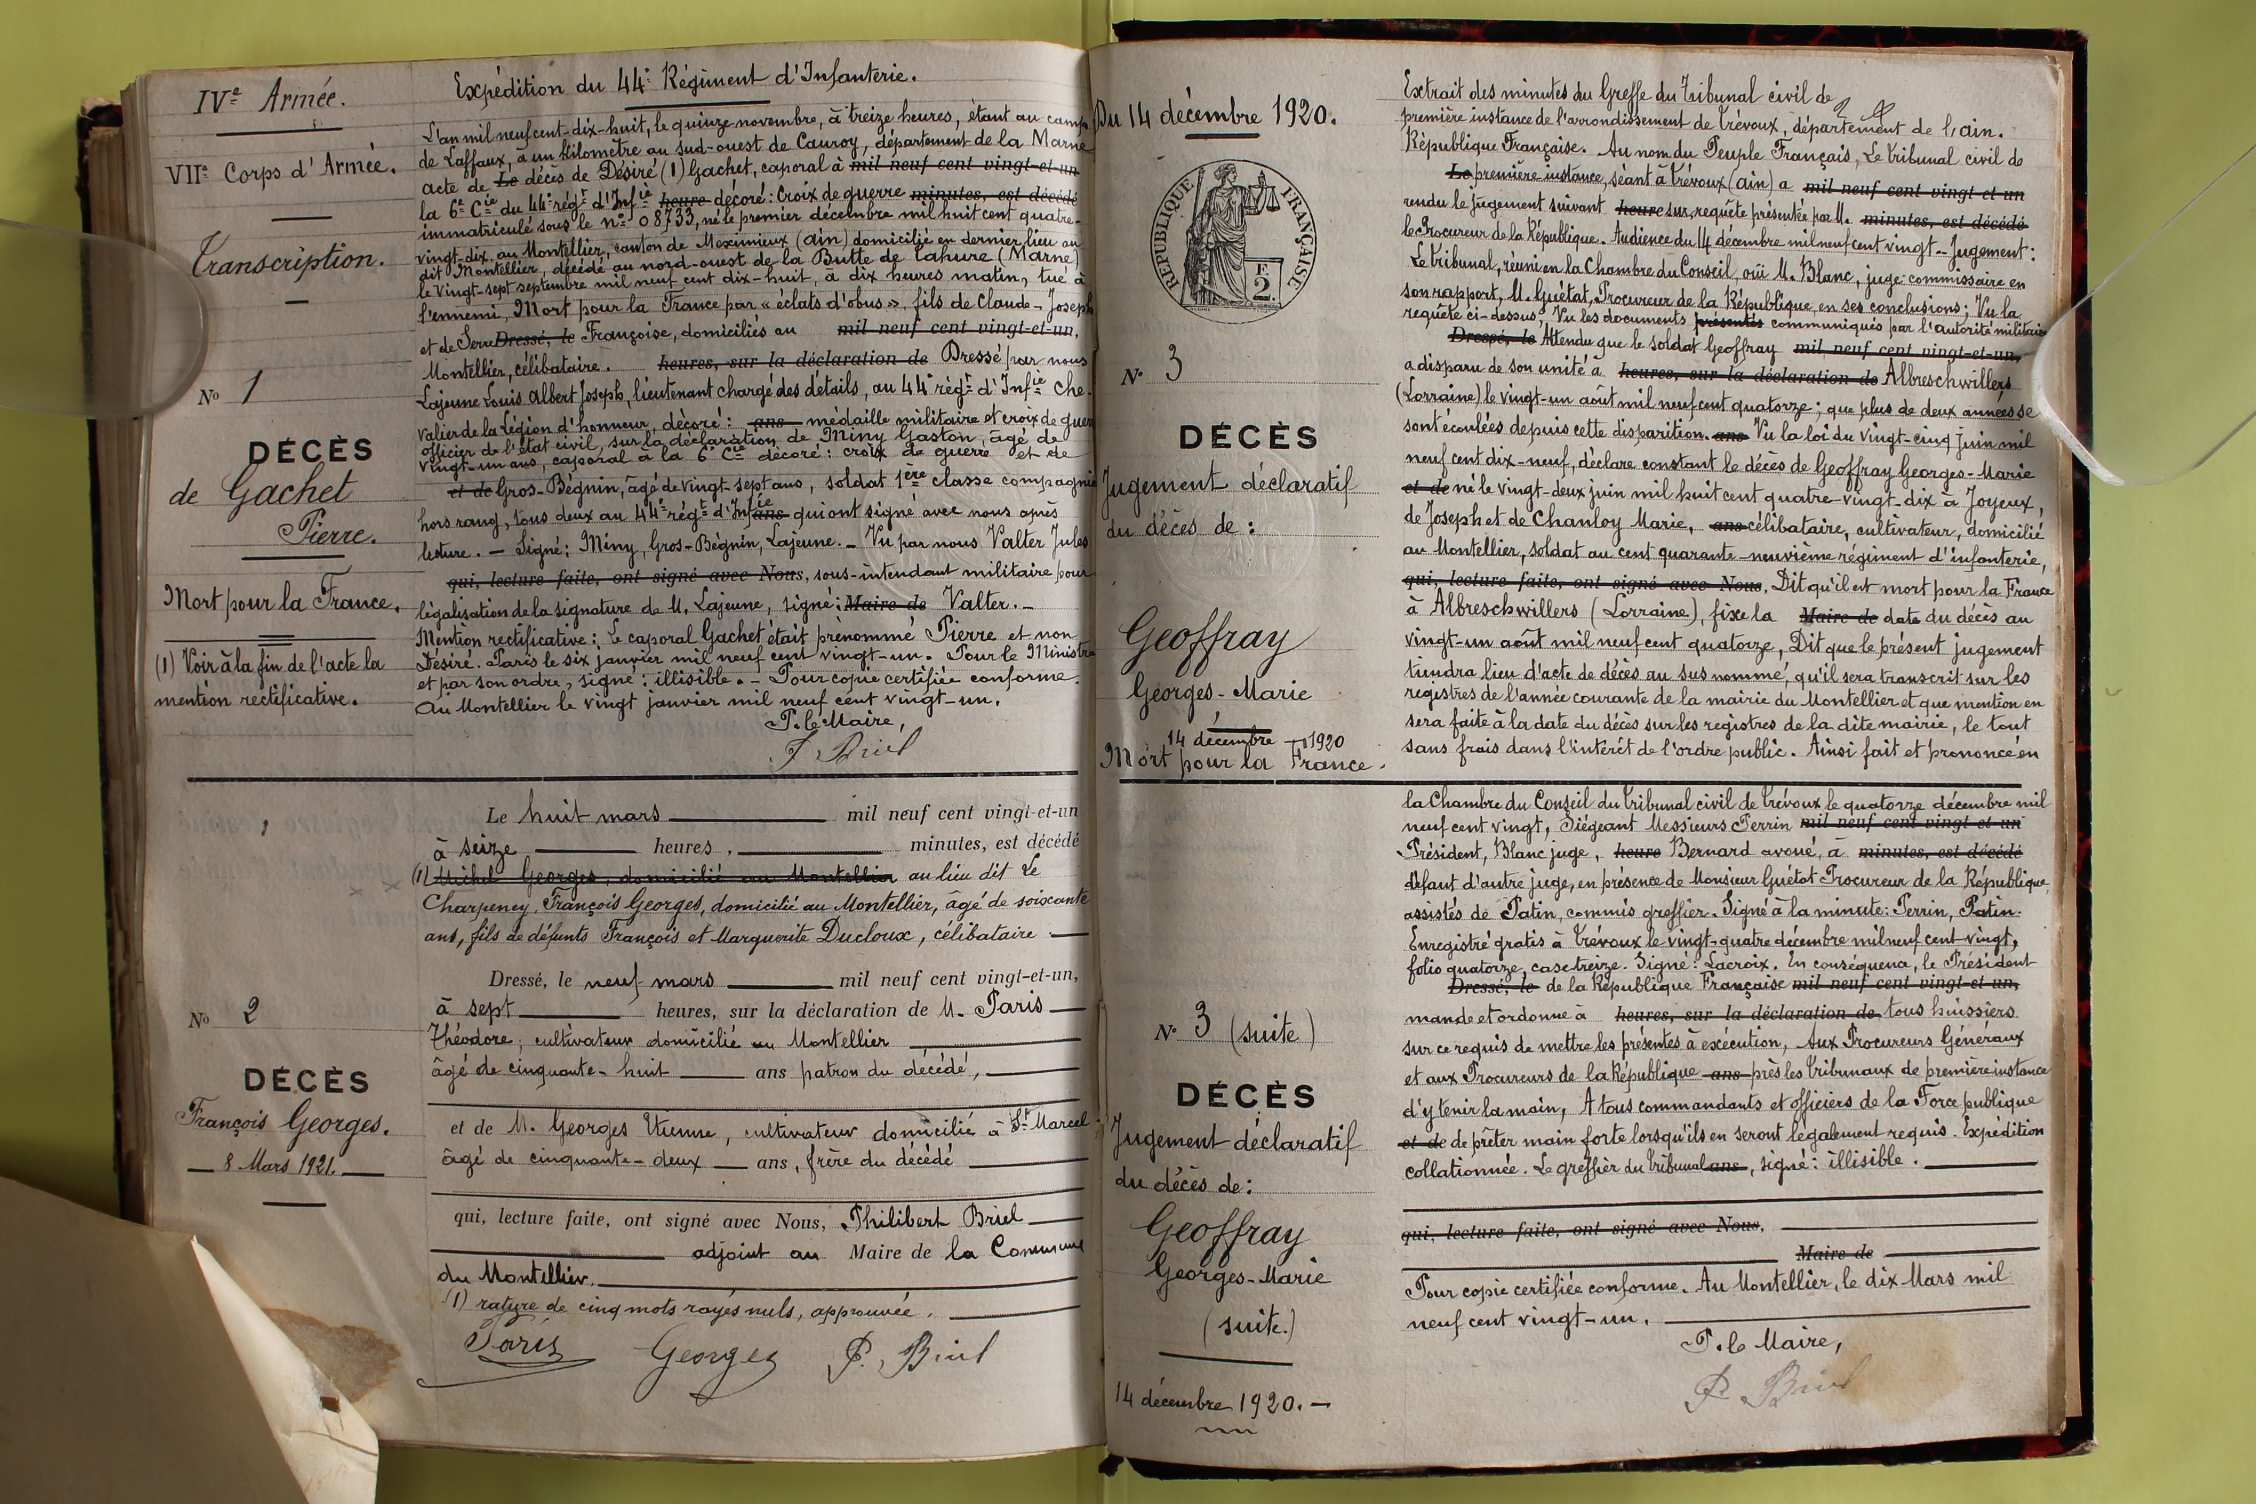 IVe Armée.
VIIe Corps d'Armée.
Transcription.
No 1
DÉCÈS
de Gachet
Pierre.
Mort pour la France.
(1) Voir à la fin de l'acte la
mention rectificative.
Expédition du 44e Régiment d'Infanterie.
L'an mil neuf cent dix-huit, le quinze novembre, à treize heures, étant au camp
de Laffaux, à un kilomètre au sud-ouest de Cauroy, département de la Marne
acte de Le décès de Désiré (1) Gachet, caporal à mil neuf cent vingt-et-un
la 6e Cie du 44e régt d'Infie heure décoré: Croix de guerre minutes, est décédé
immatriculé sous le no 08733, né le premier décembre mil huit cent quatre-
vingt-dix, au Montellier, canton de Meximieux (Ain) domicilié en dernier lieu au
dit Montellier, décédé au nord-ouest de la Butte de Tahure (Marne)
le vingt-sept septembre mil neuf cent dix-huit, à dix heures matin, tué à
l'ennemi, Mort pour la France par « éclats d'obus », fils de Claude-Joseph
et de Serre Dressé, le Françoise, domiciliés au mil neuf cent vingt-et-un,
Montellier, célibataire. heures, sur la déclaration de Dressé par nous
Lajeune Louis Albert Joseph, lieutenant chargé des détails, au 44e régt d'Infie che-
valier de la Légion d'honneur, décoré: ans médaille militaire et croix de guer
officier de l'état civil, sur la déclaration de Miny Gaston, âgé de
vingt-un ans, caporal à la 6e Cie décoré: croix de guerre et de
et de Gros-Bégnin, âgé de vingt-sept ans, soldat 1ère classe compagnie
hors rang, tous deux au 44e régt d'Infie ans qui ont signé avec nous après
lecture. — Signé: Miny, Gros-Bégnin, Lajeune. — Vu par nous Valter Jules
qui, lecture faite, ont signé avec Nous, sous-intendant militaire pour
légalisation de la signature de M. Lajeune, signé: Maire de Valter. —
Mention rectificative: Le caporal Gachet était prénommé Pierre et non
Désiré. Paris le six janvier mil neuf cent vingt-un. Pour le Ministre
et par son ordre, signé: illisible. — Pour copie certifiée conforme.
Au Montellier le vingt janvier mil neuf cent vingt-un.
P. le Maire,
P. Briel
No 2
DÉCÈS
François Georges.
8 Mars 1921.
Le huit mars mil neuf cent vingt-et-un
à seize heures, minutes, est décédé
(1) Michel Georges, domicilié au Montellier au lieu dit Le
Charpeney, François Georges, domicilié au Montellier, âgé de soixante
ans, fils de défunts François et Marguerite Ducloux, célibataire
Dressé, le neuf mars mil neuf cent vingt-et-un,
à sept heures, sur la déclaration de M. Paris
Théodore, cultivateur domicilié au Montellier
âgé de cinquante-huit ans patron du décédé,
et de M. Georges Etienne, cultivateur domicilié à St Marcel
âgé de cinquante-deux ans, frère du décédé
qui, lecture faite, ont signé avec Nous, Philibert Briel
adjoint au Maire de la Commune
du Montellier.
(1) rature de cinq mots rayés nuls, approuvée.
Paris Georges P. Briel
Du 14 décembre 1920.
REPUBLIQUE FRANÇAISE
No 3
DÉCÈS
Jugement déclaratif
du décès de:
Geoffray
Georges-Marie
14 décembre 1920
Mort pour la France.
Extrait des minutes du Greffe du Tribunal civil de
première instance de l'arrondissement de Trévoux, département de l'ain.
République Française. Au nom du Peuple Français, Le tribunal civil de
Le première instance, séant à Trévoux (ain) a mil neuf cent vingt-et-un
rendu le jugement suivant heure sur requête présentée par M. minutes, est décédé
le Procureur de la République. Audience du 14 décembre mil neuf cent vingt - Jugement:
Le tribunal, réuni en la Chambre du Conseil, oüi M. Blanc, juge-commissaire en
son rapport, M. Guétat, Procureur de la République, en ses conclusions; Vu la
requête ci-dessus, Vu les documents présentés communiqués par l'autorité militaire
Dressé, le Attendu que le soldat Geoffray mil neuf cent vingt-et-un,
a disparu de son unité à heures, sur la déclaration de Albreschwillers
(Lorraine) le vingt-un août mil neuf cent quatorze; que plus de deux années se
sont écoulées depuis cette disparition. ans Vu la loi du vingt-cinq juin mil
neuf cent dix-neuf, déclare constant le décès de Geoffray Georges-Marie
et de né le vingt-deux juin mil huit cent quatre-vingt-dix à Joyeux,
de Joseph et de Chanloy Marie, ans célibataire, cultivateur, domicilié
au Montellier, soldat au cent quarante-neuvième régiment d'infanterie,
qui, lecture faite, ont signé avec Nous. Dit qu'il est mort pour la France
à Albreschwillers (Lorraine), fixe la Maire de date du décès au
vingt-un août mil neuf cent quatorze, Dit que le présent jugement
tiendra lieu d'acte de décès au sus nommé, qu'il sera transcrit sur les
registres de l'année courante de la mairie du Montellier et que mention en
sera faite à la date du décès sur les registres de la dite mairie, le tout
sans frais dans l'intérêt de l'ordre public. Ainsi fait et prononcé en
No 3 (suite)
DÉCÈS
Jugement déclaratif
du décès de:
Geoffray
Georges-Marie
(suite.)
14 décembre 1920. —
la Chambre du Conseil du tribunal civil de Trévoux le quatorze décembre mil
neuf cent vingt, Siégeant Messieurs Perrin mil neuf cent vingt-et-un
Président, Blanc juge, heure Bernard avoué, à minutes, est décédé
défaut d'autre juge, en présence de Monsieur Guétat Procureur de la République,
assistés de Patin, commis greffier. Signé à la minute: Perrin, Patin.
Enregistré gratis à Trévoux le vingt-quatre décembre mil neuf cent vingt,
folio quatorze, case treize. Signé: Lacroix. En conséquence, le Président
Dressé, le de la République Française mil neuf cent vingt-et-un,
mande et ordonne à heures, sur la déclaration de tous huissiers
sur ce requis de mettre les présentes à exécution, Aux Procureurs Généraux
et aux Procureurs de la République ans près les tribunaux de première instance
d'y tenir la main, A tous commandants et officiers de la Force publique
et de de prêter main forte lorsqu'ils en seront légalement requis. Expédition
collationnée. Le greffier du tribunal ans, signé: illisible.
qui, lecture faite, ont signé avec Nous,
Maire de
Pour copie certifiée conforme. Au Montellier, le dix Mars mil
neuf cent vingt-un.
P. le Maire,
P. Briel